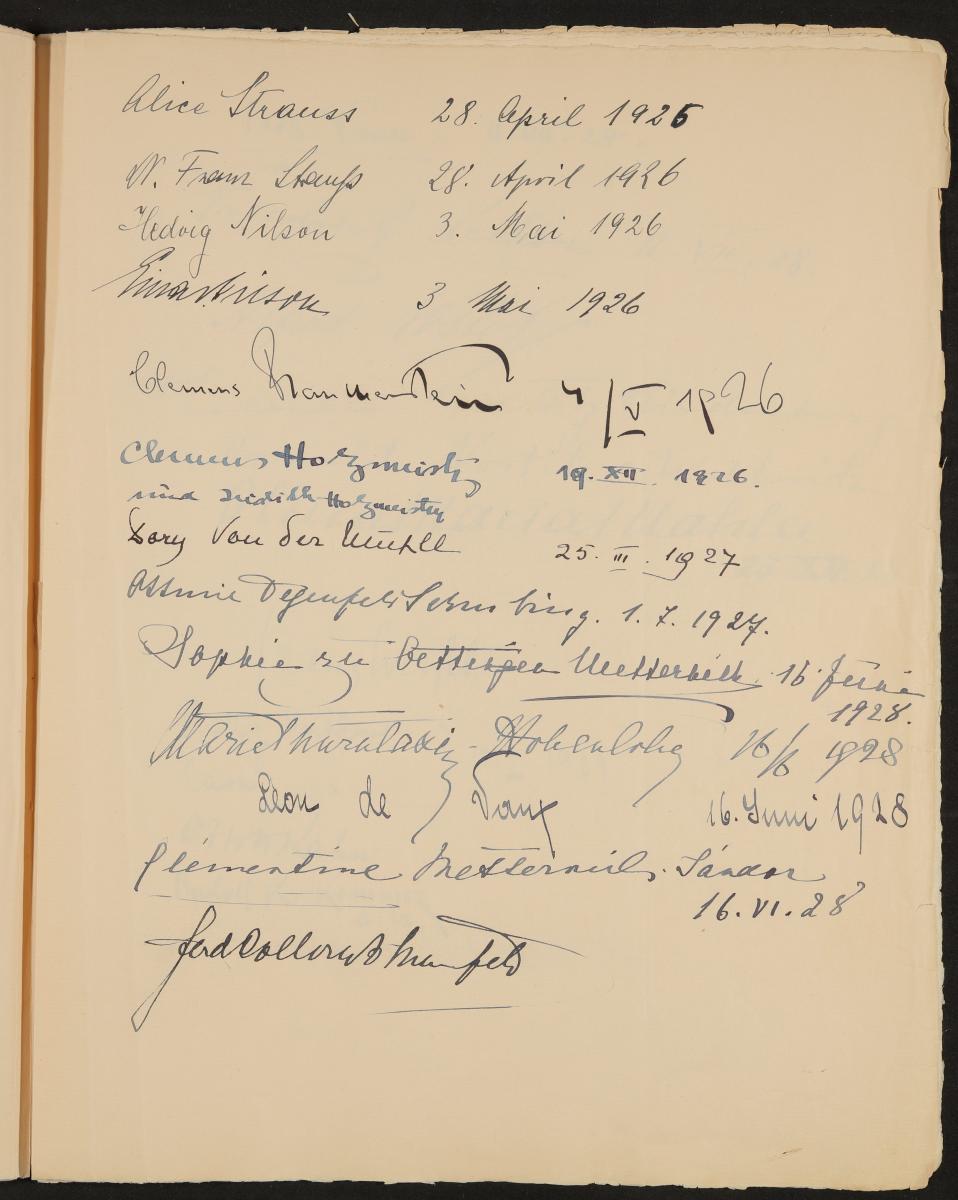 Alice Strauss 28. April 1926
Dr. Franz Strauss 28. April 1926
Hedvig Nilson 3. Mai 1926
Einar Nilson 3 Mai 1926
Clemens Franckenstein 4/V 1926
Clemens Holzmeister 19. XII. 1926.
und Judith Holzmeister
Dory Von der Mühll 25. III. 1927
Ottonie Degenfeld Schonburg. 1. 7. 1927.
Sophie zu Oettingen Metternich. 16 Juni
1928.
Marie Thurn Taxis-Hohenlohe 16/6 1928
Leon de Vaux 16. Juni 1928
Clémentine Metternich. Sándor
16. VI. 28
Ferd Colloredo Mannsfeld